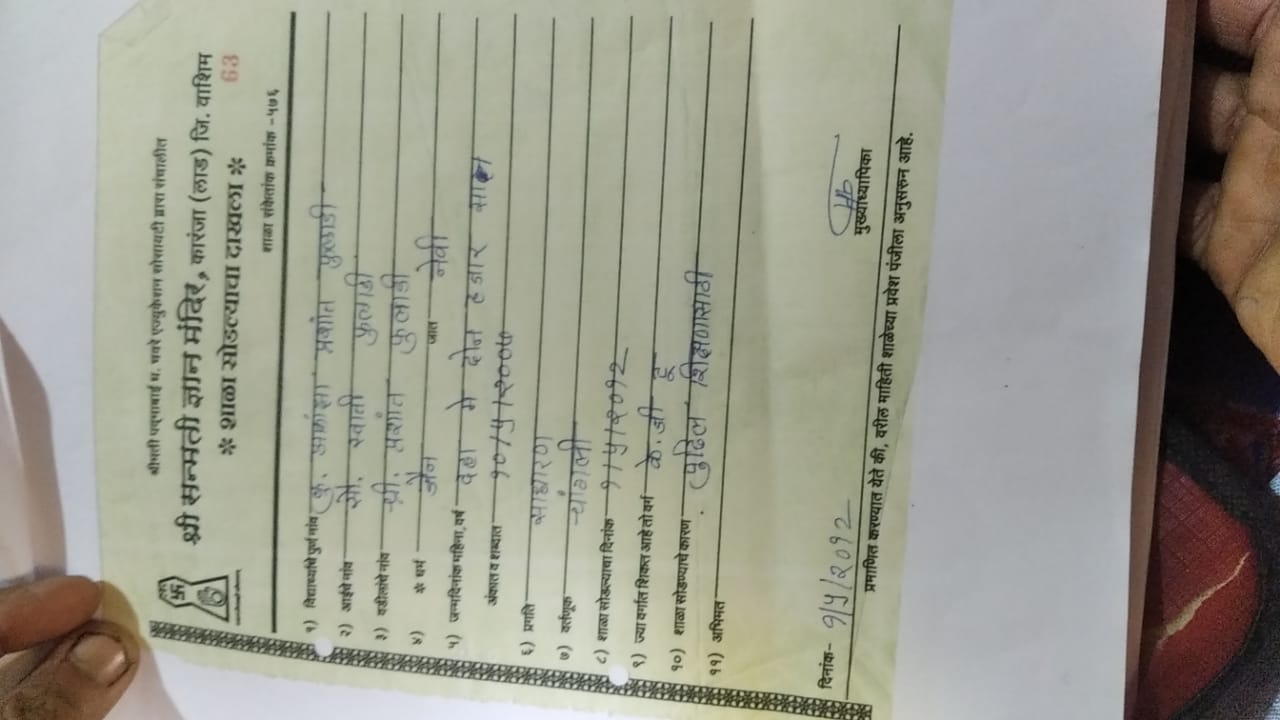 श्रीमती पद्माबाई ध. चवरे एज्युकेशन सोसायटी द्वारा संचालीत
श्री सन्मती ज्ञान मंदिर, कारंजा (लाड) जि. वाशिम
* शाळा सोडल्याचा दाखला * 63
शाळा संकेतांक क्रमांक - ५७६
१) विद्यार्थ्याचे पुर्ण नांव कु. आकांक्षा प्रशांत फुलाडी
२) आईचे नांव सौ. स्वाती फुलाडी
३) वडीलांचे नांव श्री. प्रशांत फुलाडी
४) * धर्म जैन जात नेवी
५) जन्मदिनांक महिना, वर्ष दहा मे दोन हजार सात
अंकात व शब्दात १०/५/२००७
६) प्रगति साधारण
७) वर्तणूक चांगली
८) शाळा सोडल्याचा दिनांक १/५/२०१२
९) ज्या वर्गात शिकत आहे तो वर्ग के.जी टू
१०) शाळा सोडण्याचे कारण पुढिल शिक्षणासाठी
११) अभिमत
दिनांक- 9/५/2०१2 मुख्याध्यापिका
प्रमाणित करण्यात येते की, वरील माहिती शाळेच्या प्रवेश पंजीला अनुसरुन आहे.